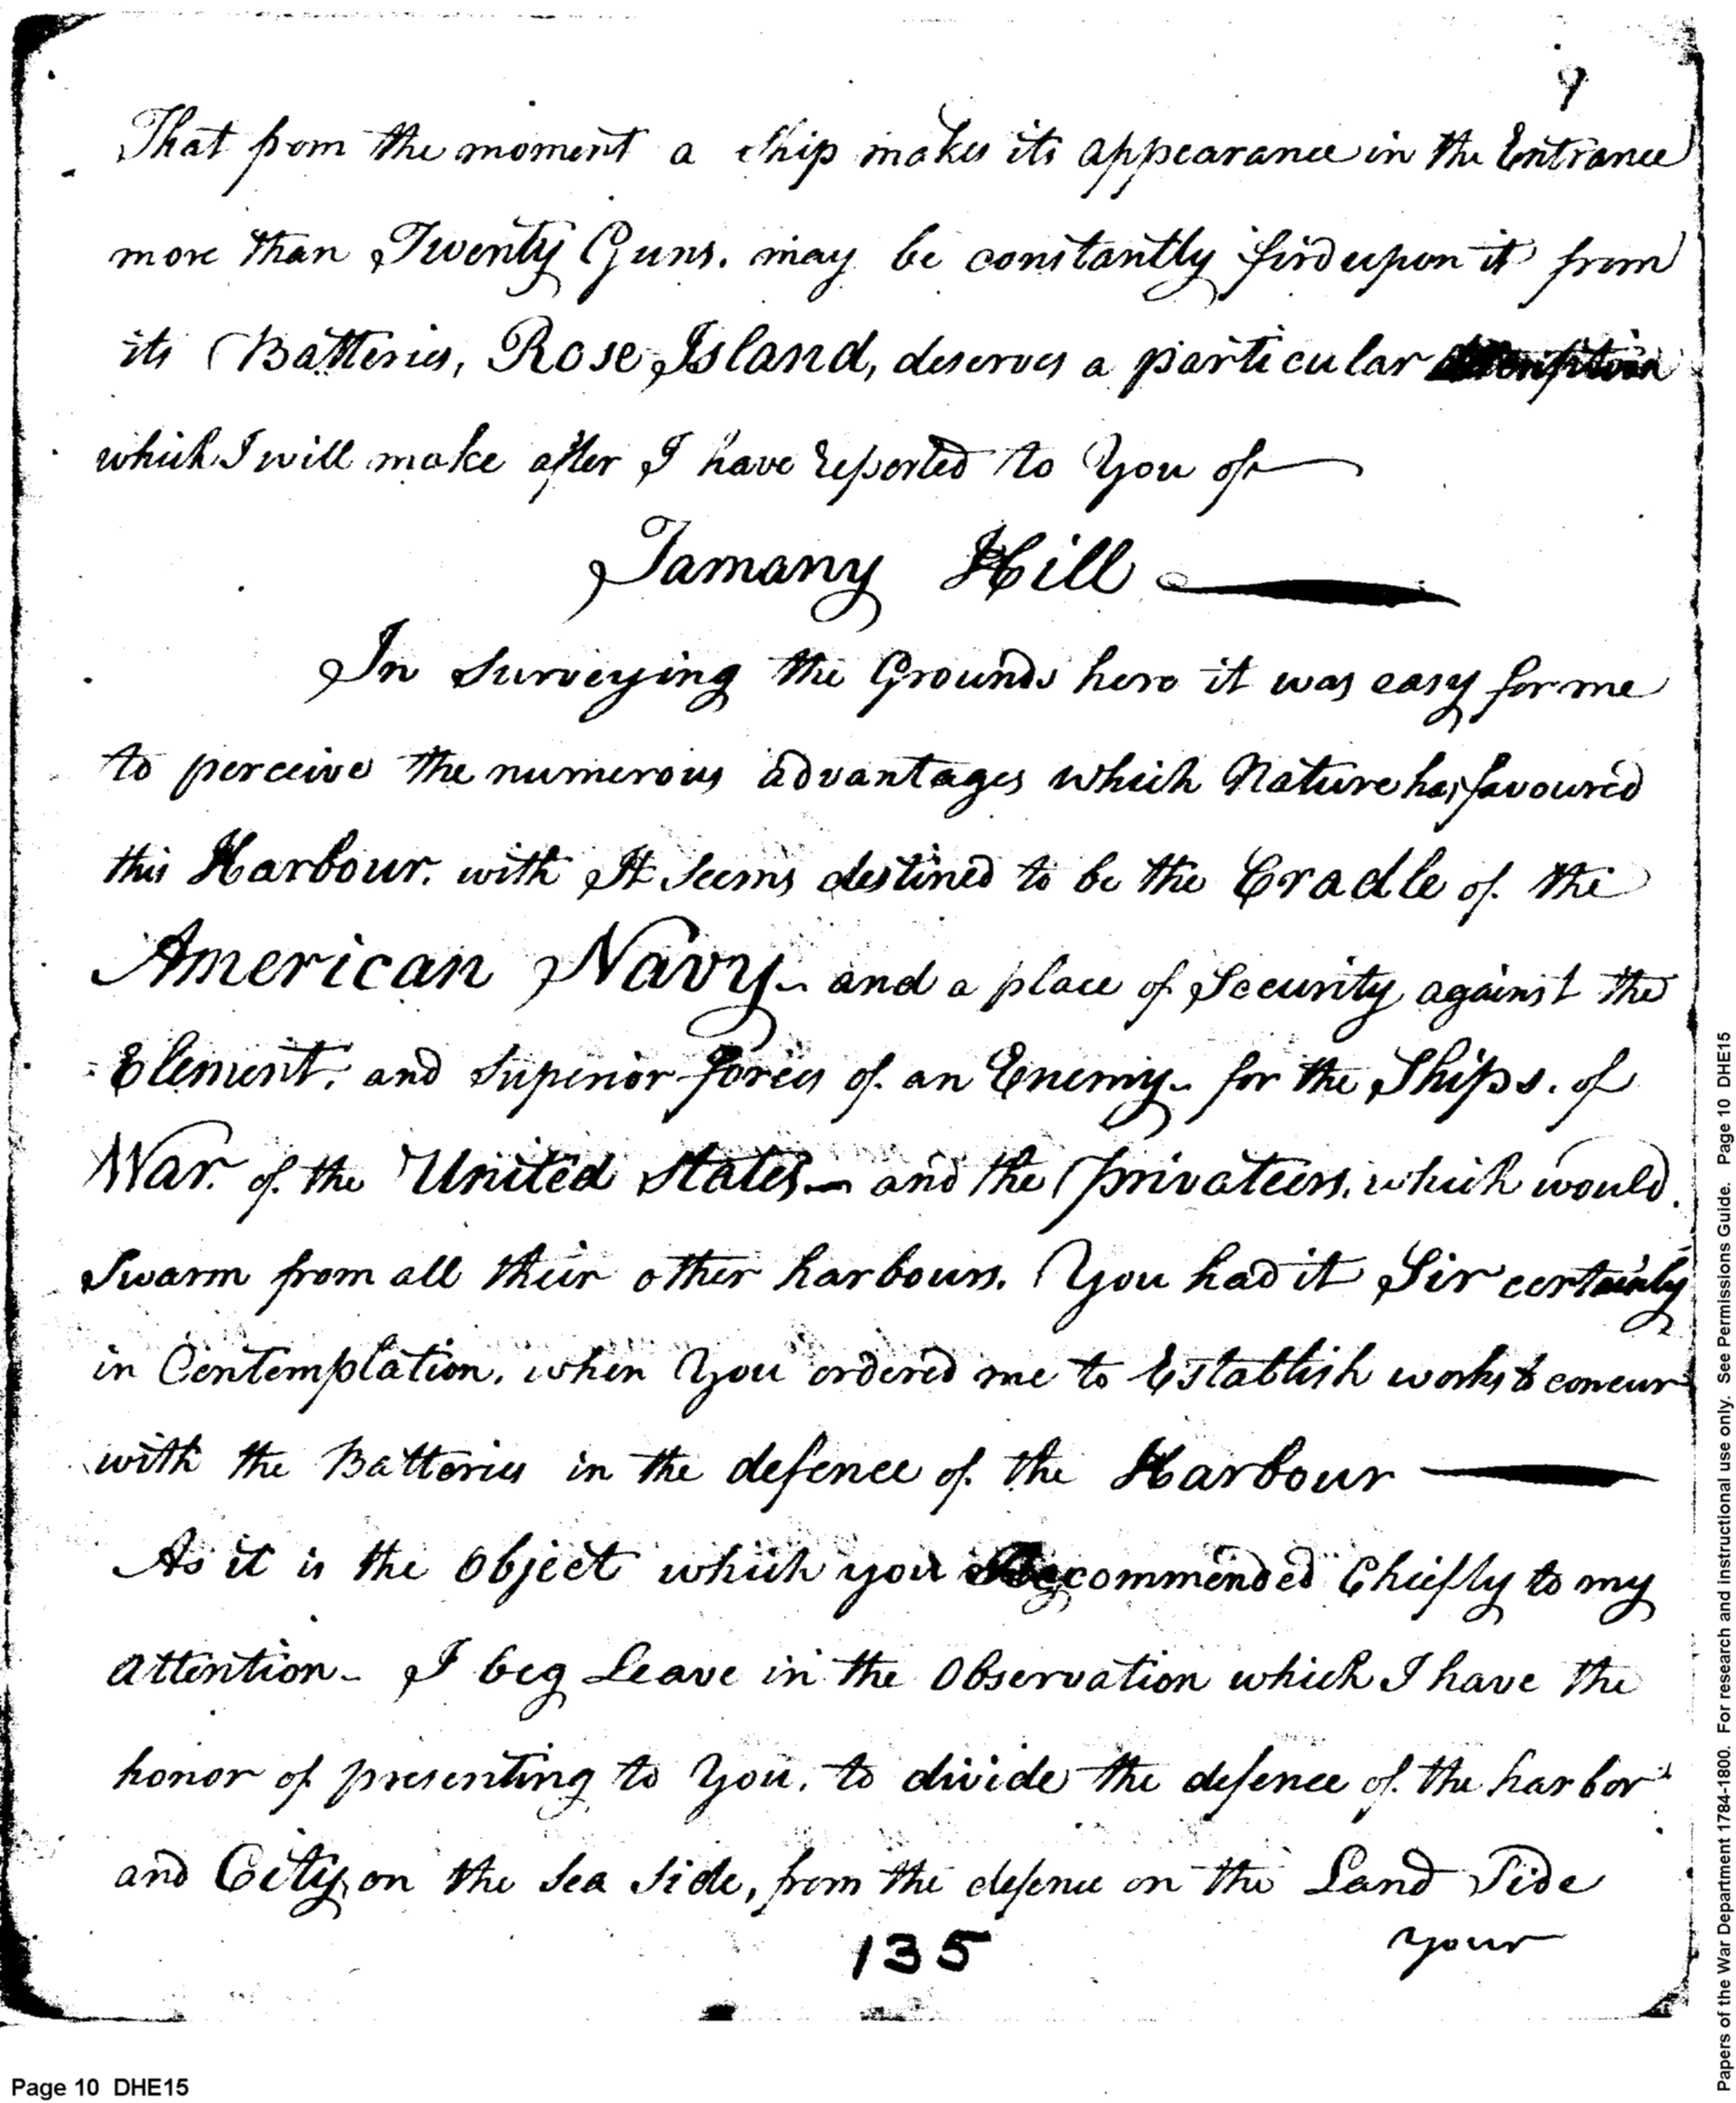 9
That from the moment a Ship makes its appearance in the Entrance
more than Twenty Guns. may be constantly fird upon it from
its Batteries, Rose Island, deserves a particular description
which I will make after I have reported to You of
Tamany Hill
In Surveying the Grounds here it was easy for me
to perceive the numerous advantages which Nature has favoured
this Harbour. with It Seems destined to be the Cradle of the
American Navy and a place of Security against the
Element. and Superior forces of an Enemy for the Ships. of
War. of the United States and the privateers. which would
Swarm from all their other harbours. You had it Sir certainly
in Contemplation, when You ordered me to Establish works to concur
with the Batteries in the defence of the Harbour
As it is the Object which you Recommended Chiefly to my
attention - I beg Leave in the Observation which I have the
honor of presenting to You, to divide the defence of the harbor
and City, on the Sea Side, from the defence on the Land Side
your
135
Page 10 DHE15
Papers of the War Department 1784-1800. For research and instructional use only. See Permissions Guide. Page 10 DHE15